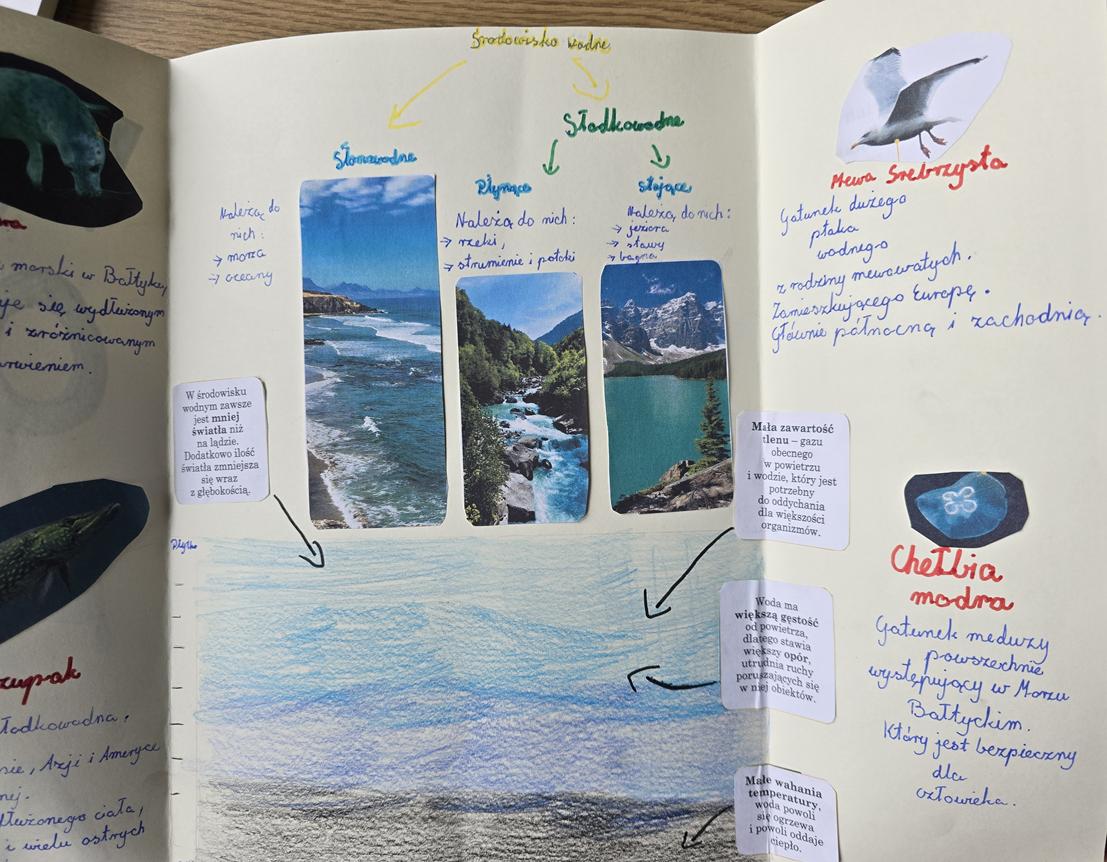 Środowisko wodne
Słodkowodne
Słonowodne
Należą do
nich:
→ morza
→ oceany
Płynące
Należą do nich:
→ rzeki,
→ strumienie i potoki
stojące
Należą do nich:
→ jeziora
→ stawy
→ bagna
W środowisku
wodnym zawsze
jest mniej
światła niż
na lądzie.
Dodatkowo ilość
światła zmniejsza
się wraz
z głębokością.
Mała zawartość
tlenu – gazu
obecnego
w powietrzu
i wodzie, który jest
potrzebny
do oddychania
dla większości
organizmów.
Woda ma
większą gęstość
od powietrza,
dlatego stawia
większy opór,
utrudnia ruchy
poruszających się
w niej obiektów.
Małe wahania
temperatury,
woda powoli
się ogrzewa
i powoli oddaje
ciepło.
morski w Bałtyku,
je się wydłużonym
i zróżnicowanym
arwieniem.
zupak
łodkowodna.
sie, Azji i Ameryce
nej.
dłużonego ciała,
i wielu ostrych
Mewa Srebrzysta
Gatunek dużego
ptaka
wodnego
z rodziny mewowatych.
Zamieszkującego Europę.
Głównie północną i zachodnią.
Chełbia
modra
Gatunek meduzy
powszechnie
występujący w Morzu
Bałtyckim.
Który jest bezpieczny
dla
człowieka.